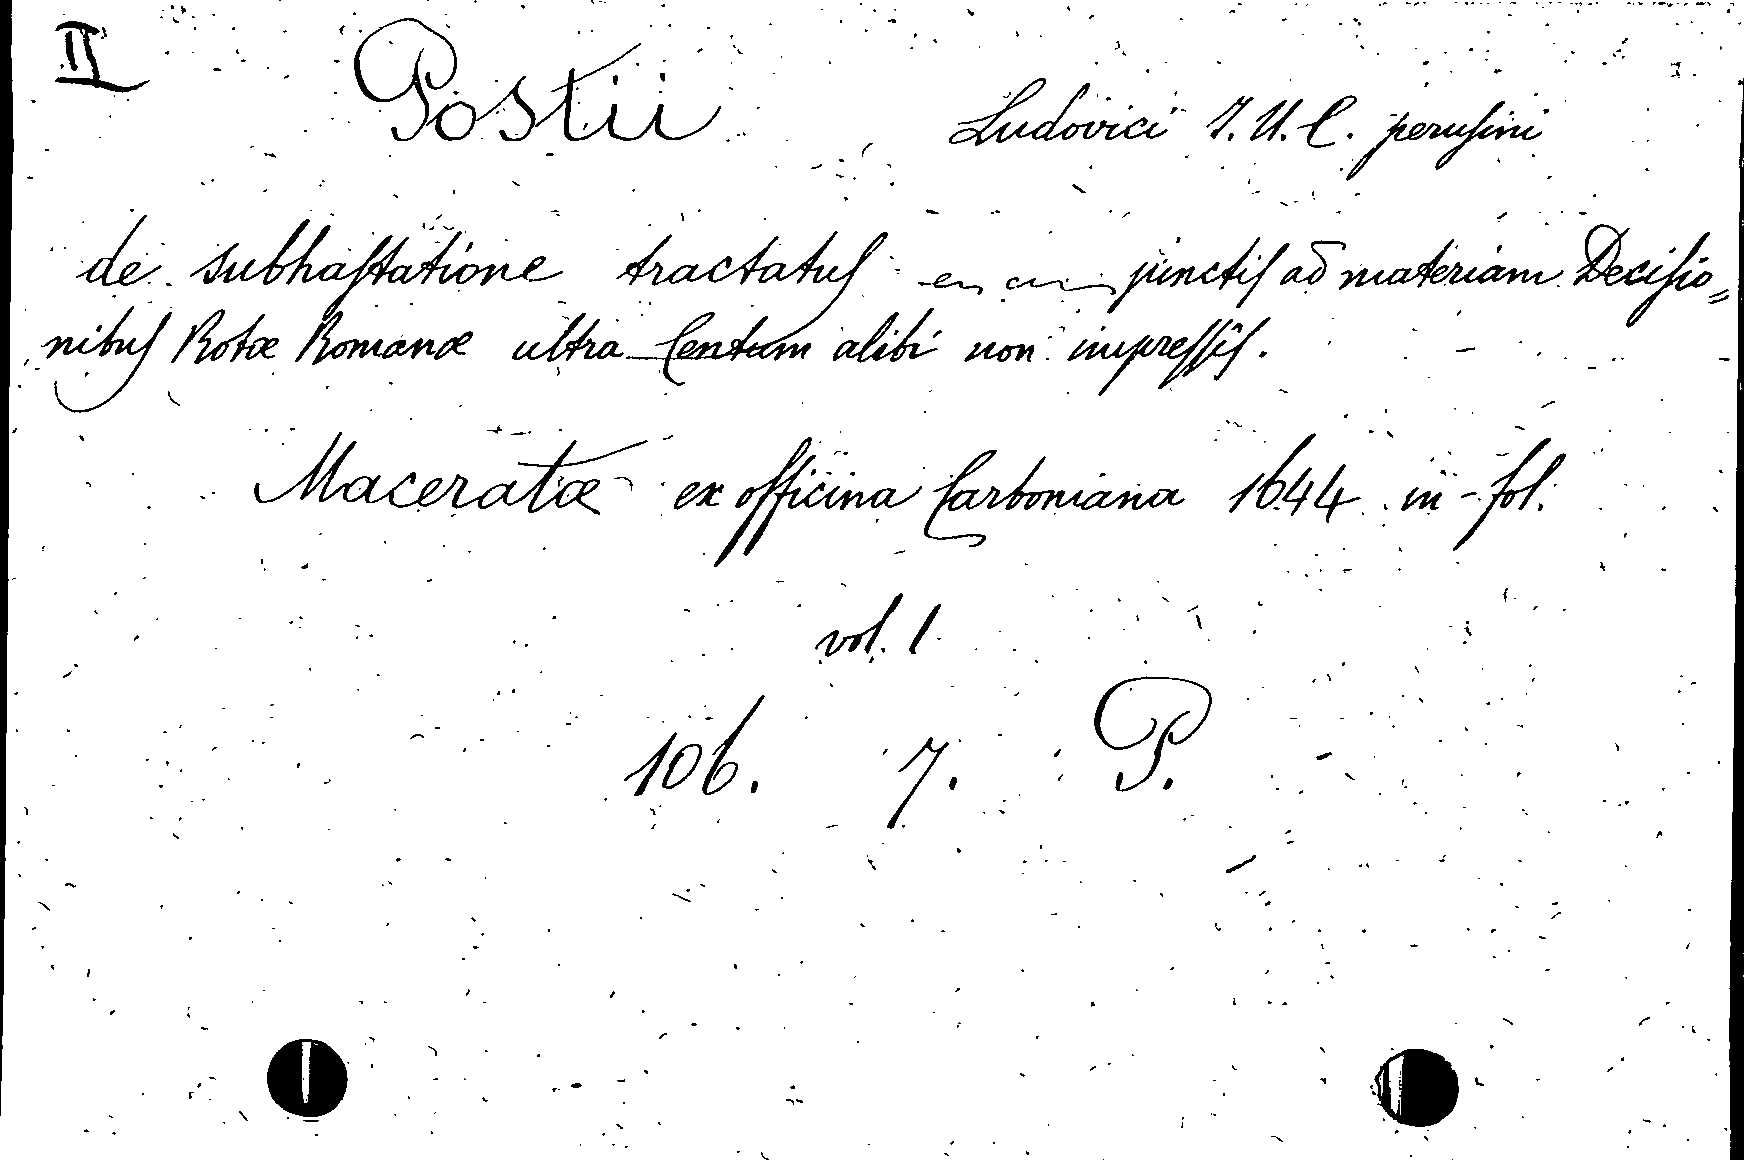 II
Postii Ludovici J. U. C. perusini
de subhastatione tractatus junctis ad materiam Decisio„
nibus Rotæ Romanæ ultra Centum alibi non impressis.
Maceratæ ex officina Carboniana 1644 in-fol.
vol. 1
106. 7. P.